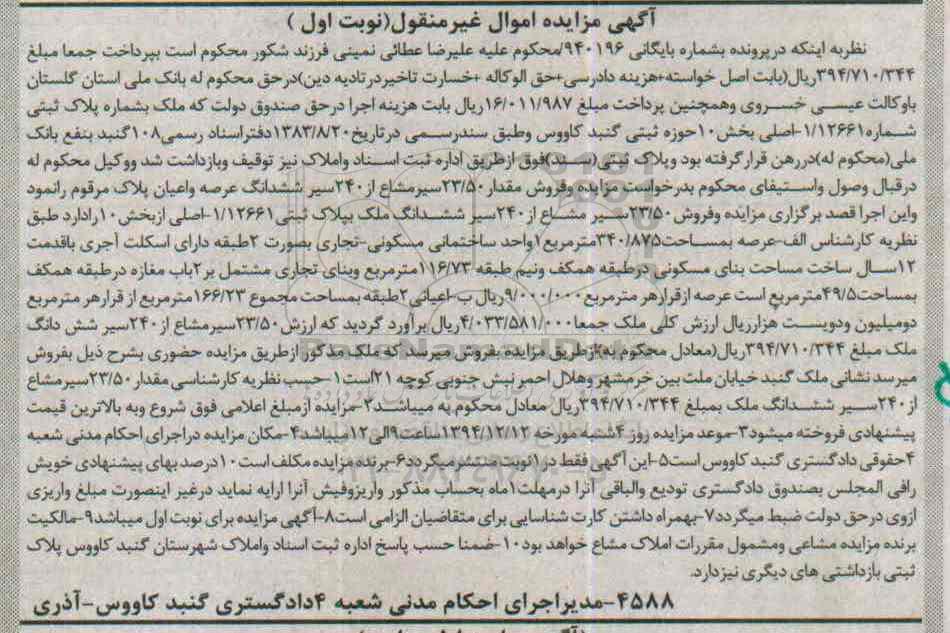 آگهی مزایده اموال غیرمنقول(نوبت اول )
نظربه اینکه درپرونده بشماره بایگانی ۹۴۰۱۹۶/محکوم علیه علیرضا عطائی نمینی فرزند شکور محکوم است بپرداخت جمعا مبلغ
۳۹۴/۷۱۰/۳۴۴ریال(بابت اصل خواسته+هزینه دادرسی+حق الوکاله +خسارت تاخیردرتادیه دین)درحق محکوم له بانک ملی استان گلستان
باوکالت عیسی خسروی وهمچنین پرداخت مبلغ ۱۶/۰۱۱/۹۸۷ریال بابت هزینه اجرا درحق صندوق دولت که ملک بشماره پلاک ثبتی
شماره۱/۱۲۶۶۱-اصلی بخش۱۰حوزه ثبتی گنبد کاووس وطبق سندرسمی درتاریخ۱۳۸۳/۸/۲۰دفتراسناد رسمی۱۰۸گنبد بنفع بانک
ملی(محکوم له)دررهن قرارگرفته بود وپلاک ثبتی(سند)فوق ازطریق اداره ثبت اسناد واملاک نیز توقیف وبازداشت شد ووکیل محکوم له
درقبال وصول واستیفای محکوم بدرخواست مزایده وفروش مقدار۲۳/۵۰سیرمشاع از۲۴۰سیر ششدانگ عرصه واعیان پلاک مرقوم رانمود
واین اجرا قصد برگزاری مزایده وفروش۲۳/۵۰سیر مشاع از۲۴۰سیر ششدانگ ملک بپلاک ثبتی۱/۱۲۶۶۱-اصلی ازبخش۱۰رادارد طبق
نظریه کارشناس الف-عرصه بمساحت۳۴۰/۸۷۵مترمربع۱واحد ساختمانی مسکونی-تجاری بصورت ۲طبقه دارای اسکلت آجری باقدمت
۱۲سال ساخت مساحت بنای مسکونی درطبقه همکف ونیم طبقه ۱۱۶/۷۳مترمربع وبنای تجاری مشتمل بر۲باب مغازه درطبقه همکف
بمساحت۴۹/۵مترمربع است عرصه ازقرارهر مترمربع۹/۰۰۰/۰۰۰ریال ب-اعیانی۲طبقه بمساحت مجموع ۱۶۶/۲۳مترمربع از قرارهر مترمربع
دومیلیون ودویست هزارریال ارزش کلی ملک جمعا۴/۰۳۳/۵۸۱/۰۰۰ریال برآورد گردید که ارزش۲۳/۵۰سیرمشاع از۲۴۰سیر شش دانگ
ملک مبلغ ۳۹۴/۷۱۰/۳۴۴ریال(معادل محکوم به)ازطریق مزایده بفروش میرسد که ملک مذکور ازطریق مزایده حضوری بشرح ذیل بفروش
میرسد نشانی ملک گنبد خیابان ملت بین خرمشهر وهلال احمر نبش جنوبی کوچه ۲۱است۱-حسب نظریه کارشناسی مقدار۲۳/۵۰سیرمشاع
از۲۴۰سیر ششدانگ ملک بمبلغ ۳۹۴/۷۱۰/۳۴۴ریال معادل محکوم به میباشد۲-مزایده ازمبلغ اعلامی فوق شروع وبه بالاترین قیمت
پیشنهادی فروخته میشود۳-موعد مزایده روز ۴شنبه مورخه ۱۳۹۴/۱۲/۱۲ساعت۹الی۱۲میباشد۴-مکان مزایده دراجرای احکام مدنی شعبه
۴حقوقی دادگستری گنبد کاووس است۵-این آگهی فقط در۱نوبت منتشرمیگردد۶-برنده مزایده مکلف است۱۰درصد بهای پیشنهادی خویش
رافی المجلس بصندوق دادگستری تودیع والباقی آنرا درمهلت۱ماه بحساب مذکور واریزوفیش آنرا ارایه نماید درغیر اینصورت مبلغ واریزی
ازوی درحق دولت ضبط میگردد۷-بهمراه داشتن کارت شناسایی برای متقاضیان الزامی است۸-آگهی مزایده برای نوبت اول میباشد۹-مالکیت
برنده مزایده مشاعی ومشمول مقررات املاک مشاع خواهد بود۱۰-ضمنا حسب پاسخ اداره ثبت اسناد واملاک شهرستان گنبد کاووس پلاک
ثبتی بازداشتی های دیگری نیزدارد.
۴۵۸۸-مدیراجرای احکام مدنی شعبه ۴دادگستری گنبد کاووس-آذری